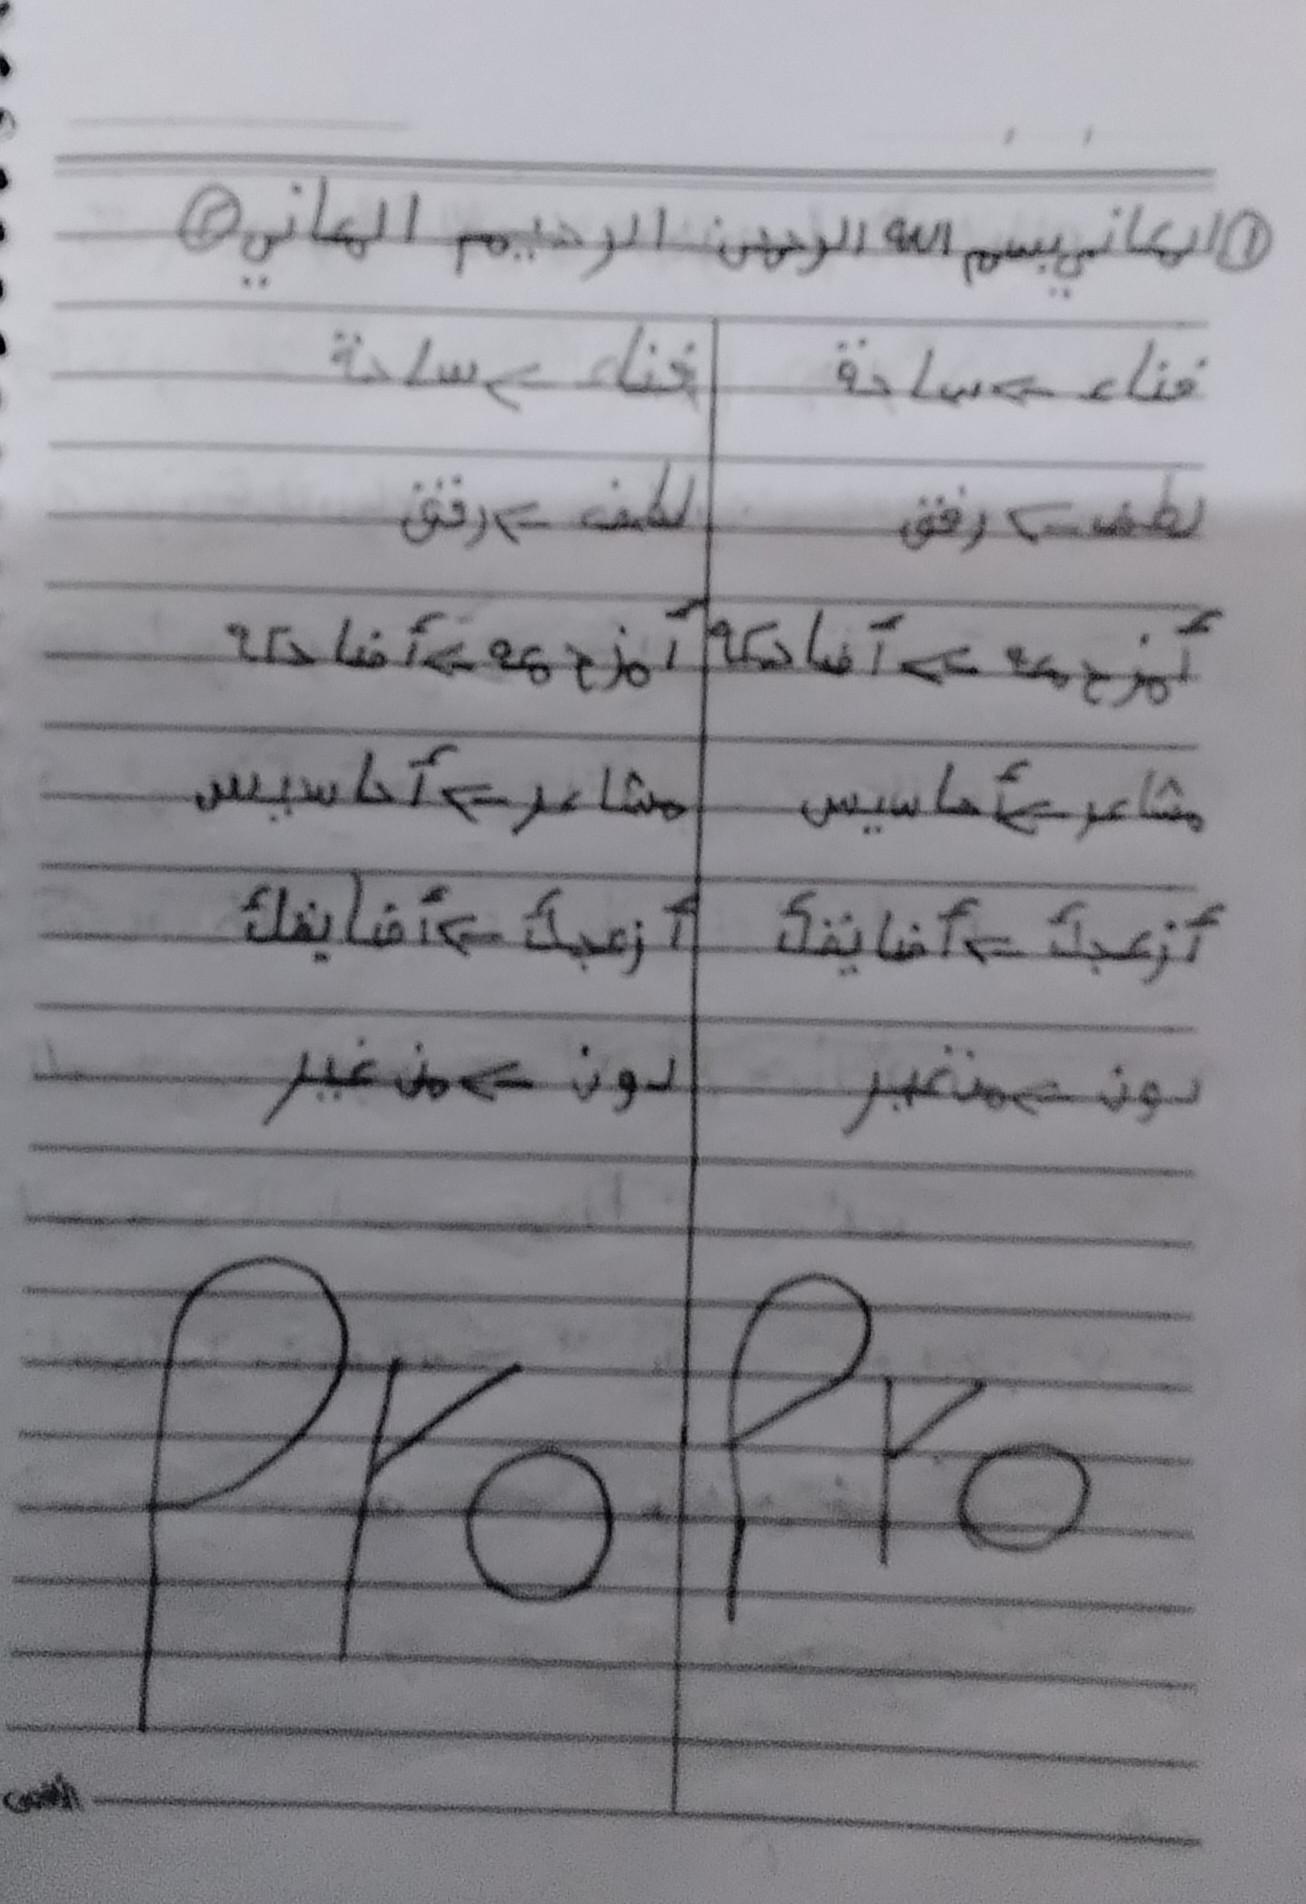 ① المعاني بسم الله الرحمن الرحيم المعاني ②
فناء ← ساحة فناء ← ساحة
لطف ← رفق لطف ← رفق
أمزح معه ← أضاحكه أمزح معه ← أضاحكه
مشاعر ← أحاسيس مشاعر ← أحاسيس
أزعجك ← أضايقك أزعجك ← أضايقك
دون ← من غير دون ← من غير
Pro Pro